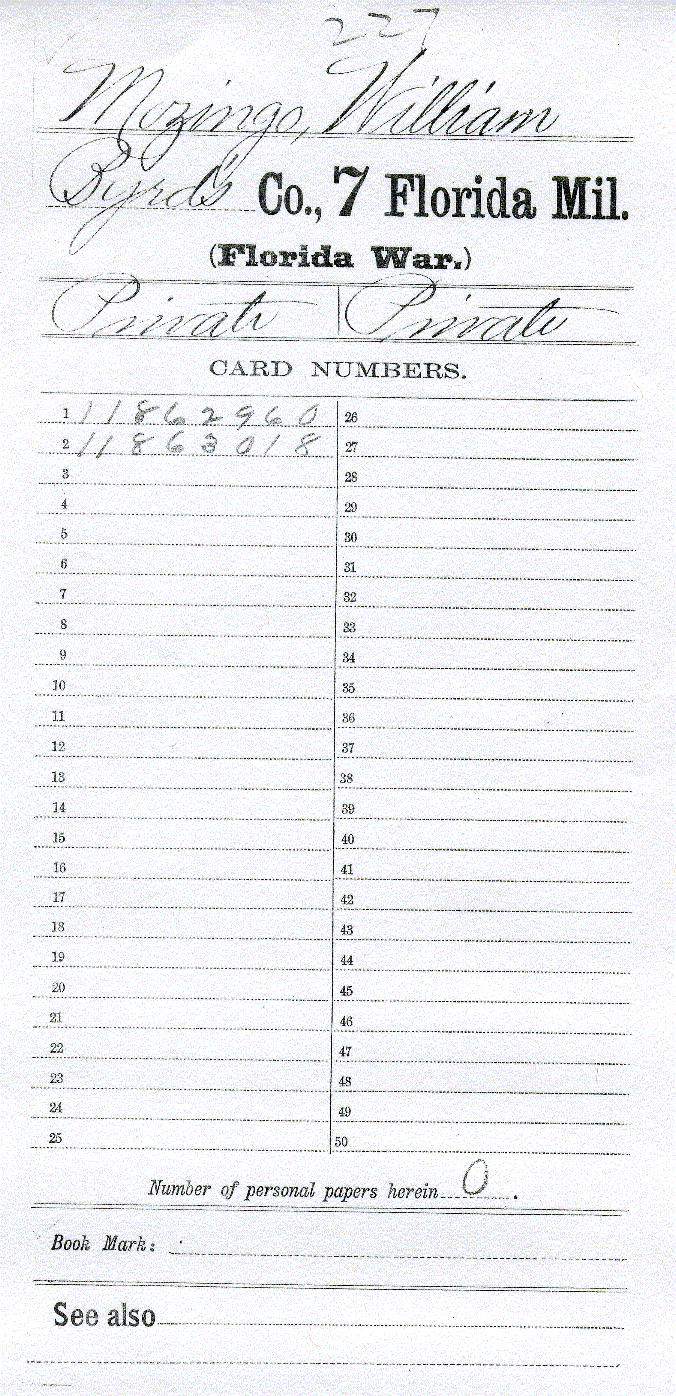 227
Mozingo, William
Byrd's Co., 7 Florida Mil.
(Florida War.)
Private Private
CARD NUMBERS.
1 11862960 26
2 11863018 27
3 28
4 29
5 30
6 31
7 32
8 33
9 34
10 35
11 36
12 37
13 38
14 39
15 40
16 41
17 42
18 43
19 44
20 45
21 46
22 47
23 48
24 49
25 50
Number of personal papers herein 0.
Book Mark:
See also